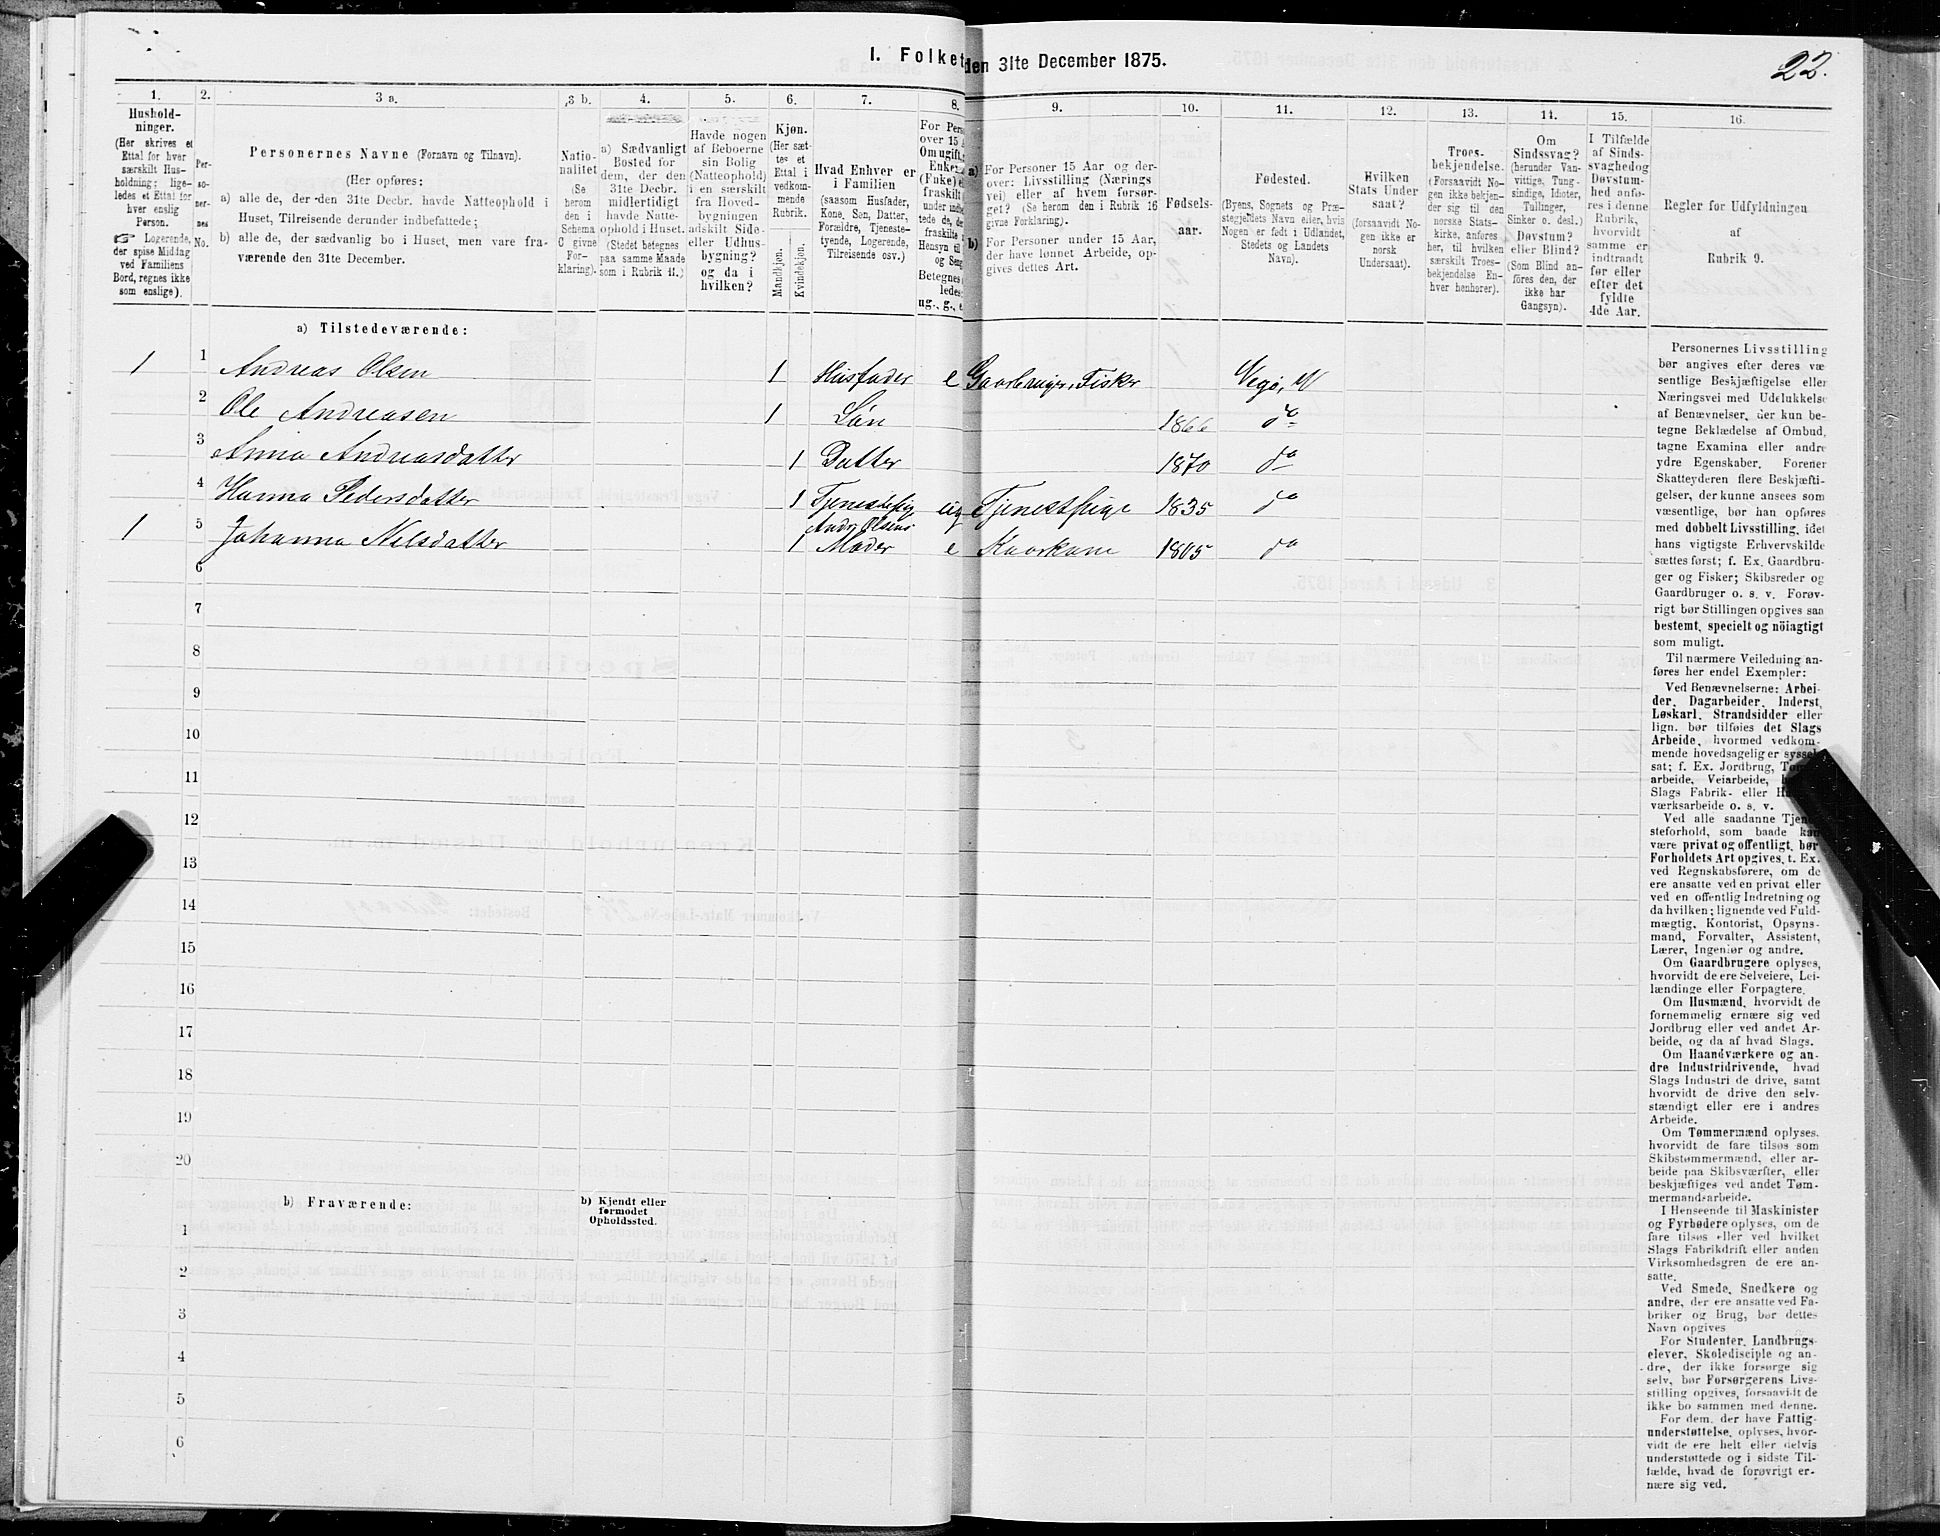 I. Folket
den 31te December 1875.
22.
1.
2.
3 a.
3 b.
4.
5.
6.
7.
8.
9.
10.
11.
12.
13.
14.
15.
16.
Hushold-
ninger.
(Her skrives et
Ettal for hver
særskilt Hus-
holdning; lige-
ledes et Ettal for
hver enslig
Person.
☞ Logerende,
der spise Middag
ved Familiens
Bord, regnes ikke
som enslige).
Per-
so-
ner-
nes
No.
Personernes Navne (Fornavn og Tilnavn).
(Her opføres:
a) alle de, der den 31te Decbr. havde Natteophold i
Huset, Tilreisende derunder indbefattede;
b) alle de, der sædvanlig bo i Huset, men vare fra-
værende den 31te December.
Natio-
nalitet
(Se
herom
den i
Schema
C givne
For-
klaring).
a) Sædvanligt
Bosted for
dem, der den
31te Decbr.
midlertidigt
havde Natte-
ophold i Huset.
(Stedet betegnes
paa samme Maade
som i Rubrik 11.)
Havde nogen
af Beboerne
sin Bolig
(Natteophold)
i en særskilt
fra Hoved-
bygningen
adskilt Side-
eller Udhus-
bygning?
og da i
hvilken?
Kjøn.
(Her sæt-
tes et
Ettal i
vedkom-
mende
Rubrik.
Mandkjøn.
Kvindekjøn.
Hvad Enhver er
i Familien
(saasom Husfader,
Kone, Søn, Datter,
Forældre, Tjeneste-
tyende, Logerende,
Tilreisende osv.)
For Pers
over 15 A
Om ugift,
Enker
(Fuke) e
fraskilt
under indbe
tede de, de
fraskilte
Hensyn til
og Seng
Betegnes
ledes:
ug., g., e
a) For Personer 15 Aar og der-
over: Livsstilling (Nærings
vei) eller af hvem forsør-
get? (Se herom den i Rubrik 16
givne Forklaring).
b) For Personer under 15 Aar,
der have lønnet Arbeide, op-
gives dettes Art.
Fødsels-
aar.
Fødested.
(Byens, Sognets og Præ-
stegjeldets Navn eller, hvis
Nogen er født i Udlandet,
Stedets og Landets
Navn).
Hvilken
Stats Under
saat?
(forsaavidt No-
gen ikke er
norsk
Undersaat).
Troes-
bekjendelse.
(Forsaavidt No-
gen ikke bekjen-
der sig til den
norske Stats-
kirke, anføres
her, til hvilken
særskilt Troes-
bekjendelse En-
hver henhører).
Om
Sindssvag?
(herunder Van-
vittige, Tung-
sindige, Idioter,
Tullinger,
Sinker o. desl.)
Døvstum?
eller Blind?
(Som Blind an-
føres den, der
ikke har
Gangsyn).
I Tilfælde
af Sinds-
svaghed og
Døvstum-
hed anfø-
res i denne
Rubrik,
hvorvidt
samme er
indtraadt
før eller
efter det
fyldte
4de Aar.
Regler for Udfyldningen
af
Rubrik 9.
a) Tilstedeværende:
1 1 Andreas Olsen 1 Husfader e Gaarbruger, Fisker Vegø, N
2 Ole Andreasen 1 Søn 1866 do
3 Anna Andreasdatter 1 Datter 1870 do
4 Hanna Pedersdatter 1 Tjenestpig ug Tjenestpige 1835 do
Andr. Olsens
1 5 Johanna Nilsdatter 1 Moder e Kaarkone 1805 do
6
7
8
9
10
11
12
13
14
15
16
17
18
19
20
b) Fraværende:
b) Kjendt eller
formodet
Opholdssted.
1
2
3
4
5
6
Personernes Livsstilling
bør angives efter deres væ
sentlige Beskjæftigelse eller
Næringsvei med Udelukkelse
af Benævnelser, der kun be-
tegne Beklædelse af Ombud,
tagne Examina eller andre
ydre Egenskaber. Forener
Skatteyderen flere Beskjæfti-
gelser, der kunne ansees som
væsentlige, bør han opføres
med dobbelt Livsstilling, idet
hans vigtigste Erhvervskilde
sættes først; f. Ex. Gaardbru-
ger og Fisker; Skibsreder og
Gaardbruger o. s. v. Forøv-
rigt bør Stillingen opgives saa
bestemt, specielt og nöiagtigt
som muligt.
Til nærmere Veiledning an-
føres her endel Exempler:
Ved Benævnelserne: Arbei-
der, Dagarbeider, Inderst,
Løskarl, Strandsidder eller
lign. bør tilføies det Slags
Arbeide, hvormed vedkom-
mende hovedsagelig er syssel
sat; f. Ex. Jordbrug, Tøm
arbeide, Veiarbeide,
Slags Fabrik- eller Ha
værksarbeide o. s. v.
Ved alle saadanne Tjene
steforhold, som baade kan
være privat og offentligt, bør
Forholdets Art opgives, t. Ex.
ved Regnskabsførere, om de
ere ansatte ved en privat eller
ved en offentlig Indretning og
da hvilken; lignende ved Fuld-
mægtig, Kontorist, Opsyns-
mand, Forvalter, Assistent,
Lærer, Ingeniør og andre.
Om Gaardbrugere oplyses,
hvorvidt de ere Selveiere, Lei-
lændinge eller Forpagtere.
Om Husmænd, hvorvidt de
fornemmelig ernære sig ved
Jordbrug eller ved andet Ar-
beide, og da af hvad Slags.
Om Haandværkere og an-
dre Industridrivende, hvad
Slags Industri de drive, samt
hvorvidt de drive den selv-
stændigt eller ere i andres
Arbeide.
Om Tømmermænd oplyses,
hvorvidt de fare tilsøs som
Skibstømmermænd, eller ar-
beide paa Skibsværfter, eller
beskjæftiges ved andet Tøm-
mermandsarbeide.
I Henseende til Maskinister
og Fyrbødere oplyses, om de
fare tilsøs eller ved hvilket
Slags Fabrikdrift eller anden
Virksomhedsgren de ere an-
satte.
Ved Smede, Snedkere og
andre, der ere ansatte ved Fa-
briker og Brug, bør dettes
Navn opgives
For Studenter, Landbrugs-
elever, Skoledisciple og an-
dre, der ikke forsørge sig
selv, bør Forsørgerens Livs-
stilling opgives, forsaavidt de
ikke bo sammen med denne.
For dem, der have Fattig-
understøttelse, oplyses, hvor-
vidt de ere helt eller delvis
understøttede og i sidste Til-
fælde, hvad de forøvrigt er-
nære sig ved.